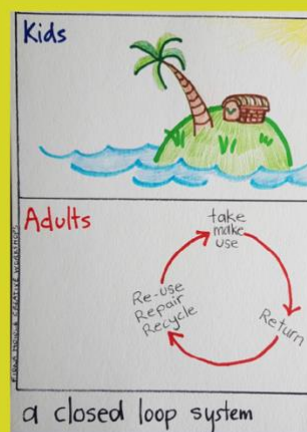 Kids
Adults
take
make
use
Return
Re-use
Repair
Recycle
a closed loop system